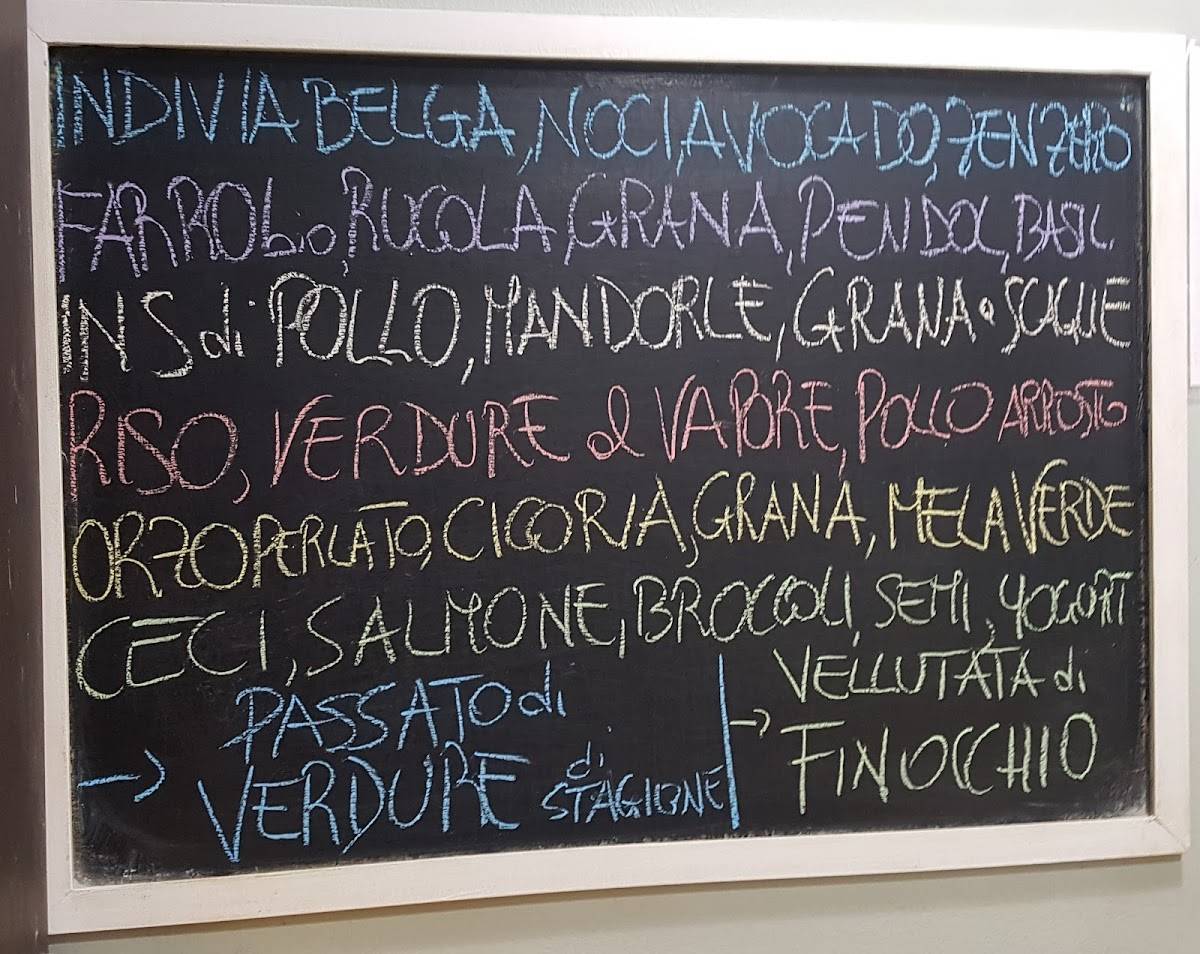 INDIVIA BELGA, NOCI, AVOCADO, ZENZERO
FARRO bio, RUCOLA, GRANA, PENDOL, BASIL.
INS di POLLO, MANDORLE, GRANA a SCAGLIE
RISO, VERDURE al VAPORE, POLLO ARROSTO
ORZO PERLATO, CICORIA, GRANA, MELA VERDE
CECI, SALMONE, BROCCOLI, SEMI, YOGURT
→ PASSATO di
VERDURE di STAGIONE
→ VELLUTATA di
FINOCCHIO